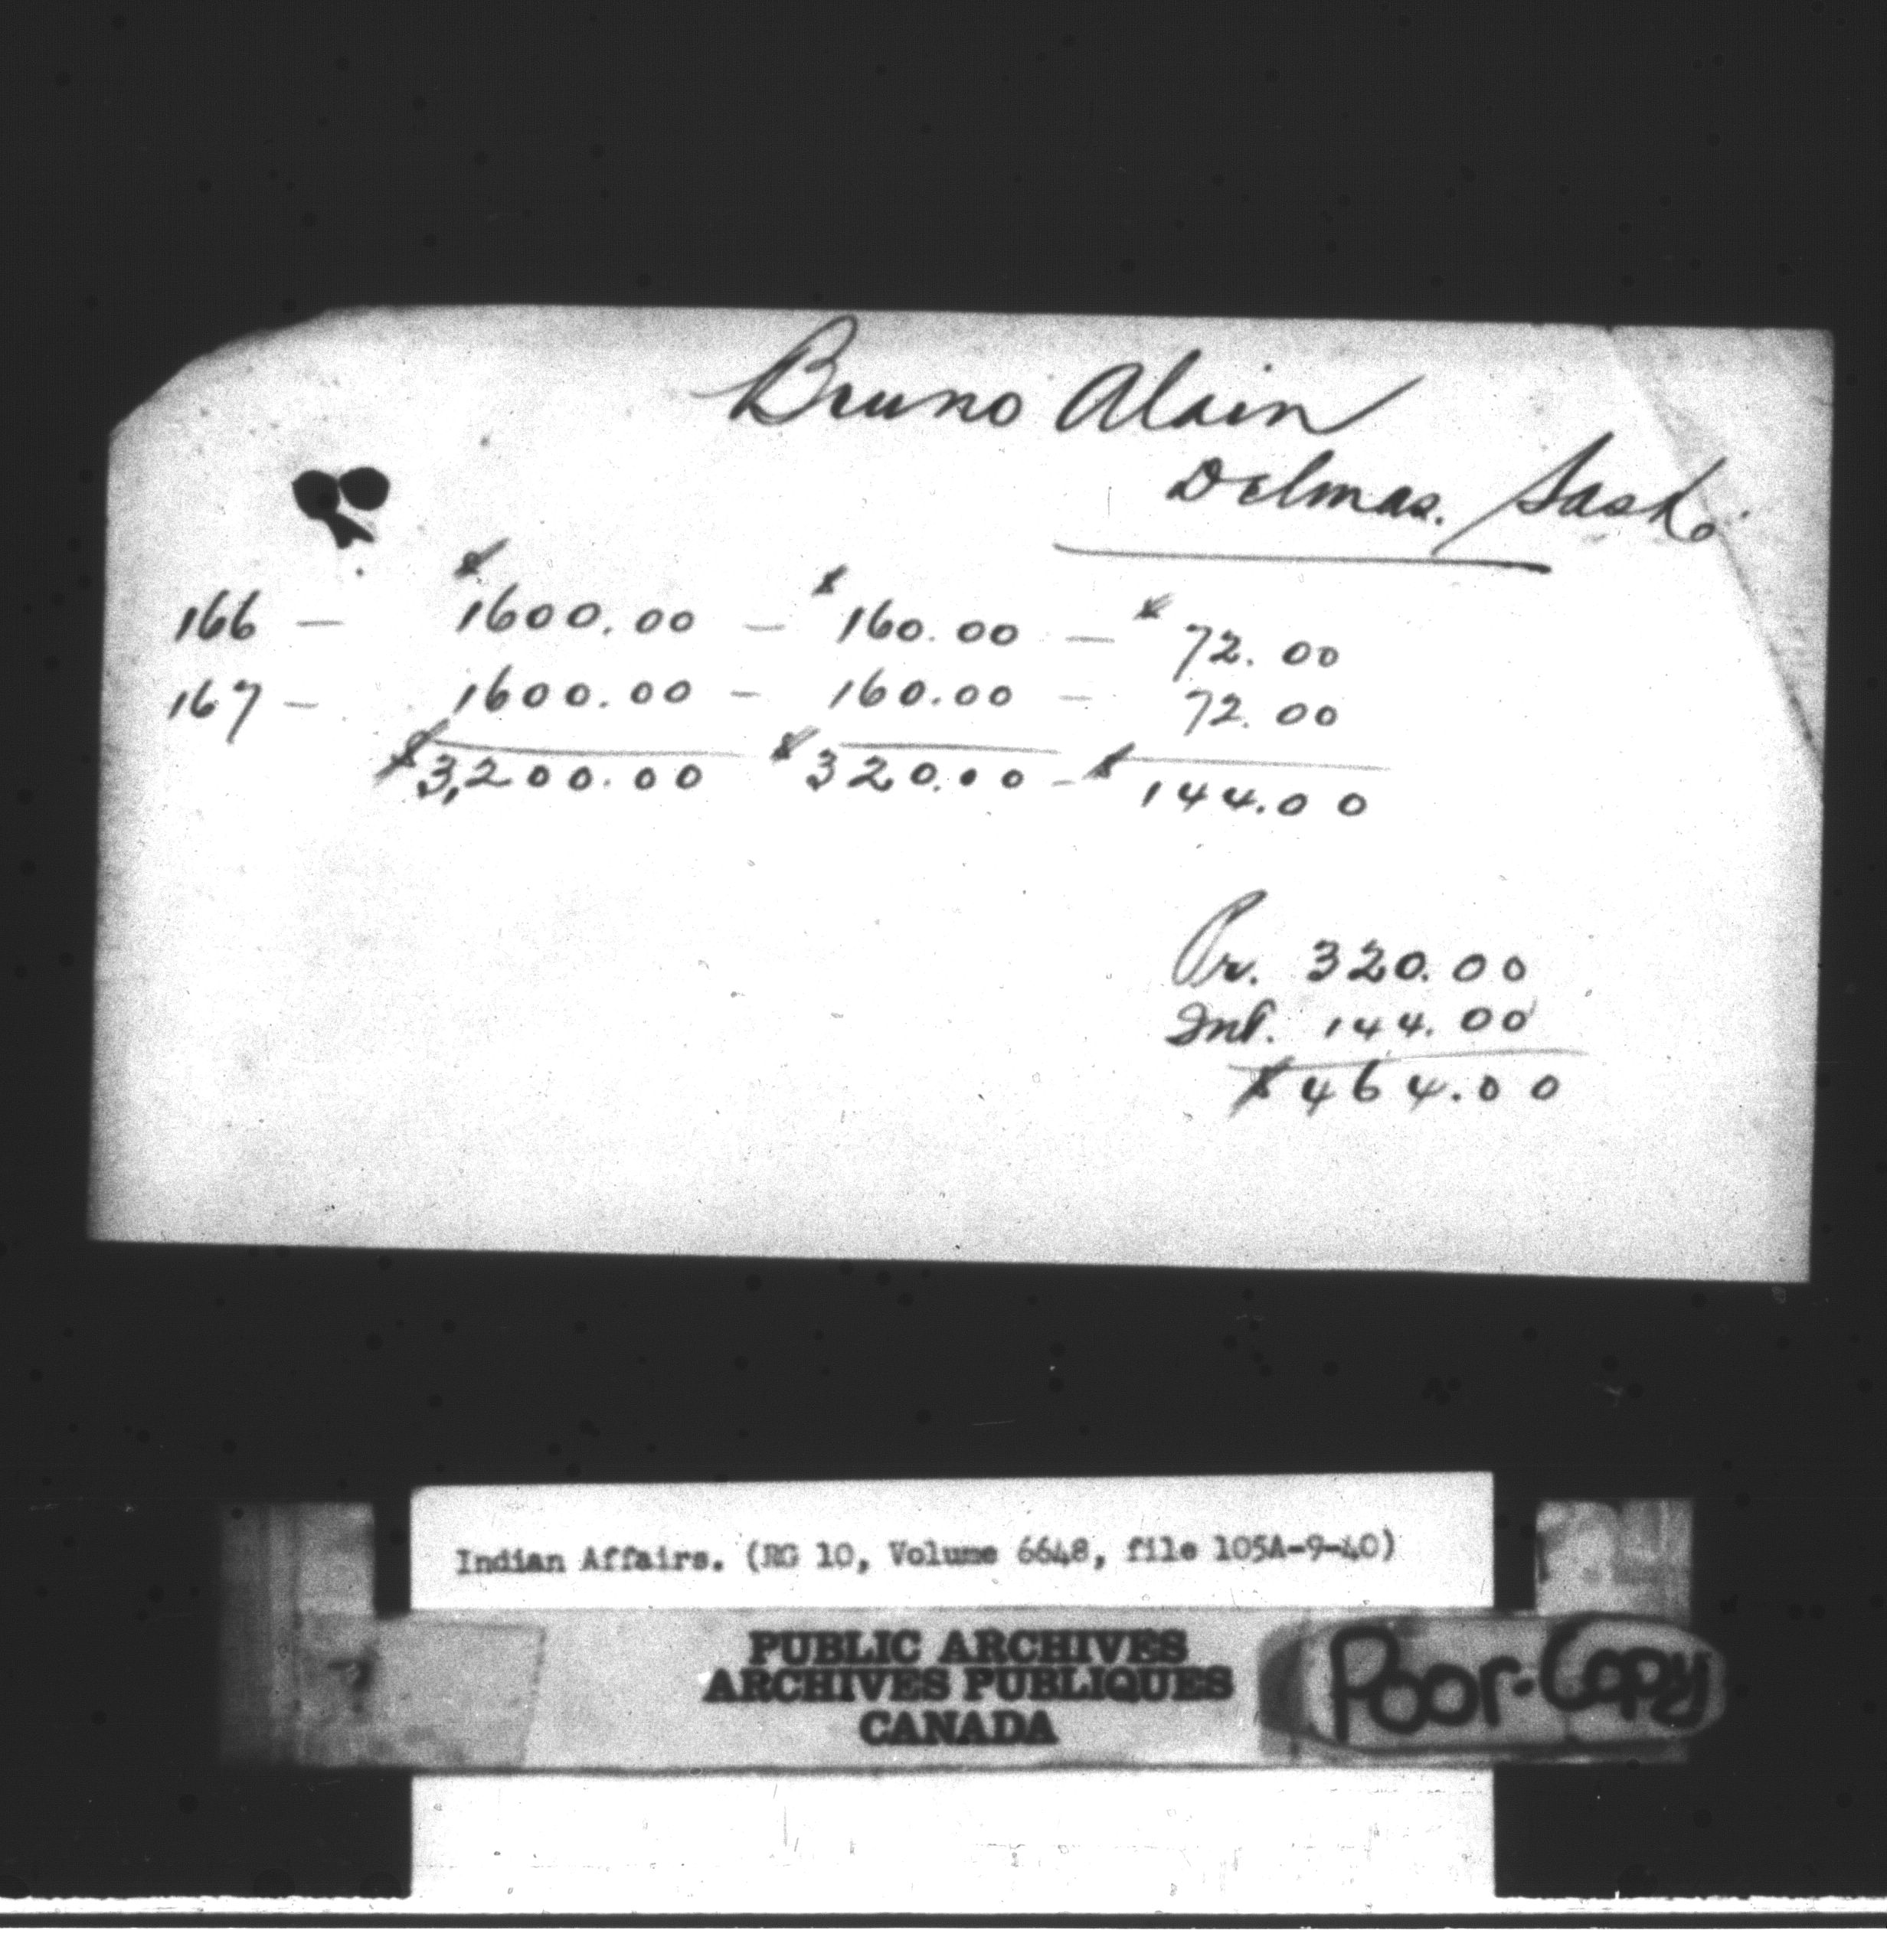 Bruno Alain
Delmas. Sask.
166 — $1600.00 — $160.00 — $72.00
167 — 1600.00 — 160.00 — 72.00
$3,200.00 $320.00 - $144.00
Pr. 320.00
Int. 144.00
$464.00
Indian Affairs. (RG 10, Volume 6648, file 105A-9-40)
PUBLIC ARCHIVES
ARCHIVES PUBLIQUES
CANADA
Poor-Copy